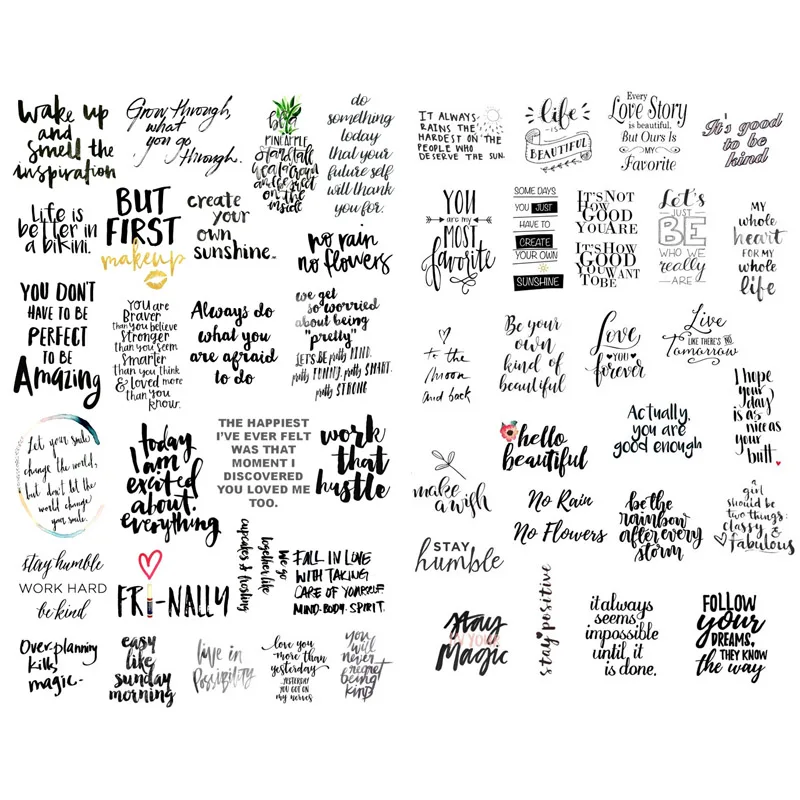 wake up
and
smell the
inspiration
Grow through,
what
you go
through.
be a
PINEAPPLE
stand tall
wear a crown
and be sweet
on the
inside
do
something
today
that your
future self
will thank
you for.
Life is
better in
a bikini.
BUT
FIRST
makeup
create
your
own
sunshine.
no rain
no flowers
YOU DON'T
HAVE TO BE
PERFECT
TO BE
Amazing
YOU are
Braver
than you believe
Stronger
than you seem
Smarter
than you think
& Loved more
than you
know.
Always do
what you
are afraid
to do
we get
so worried
about being
"pretty"
LET'S BE pretty KIND.
pretty FUNNY. pretty SMART.
pretty STRONG
Let your smile
change the world,
but don't let the
world change
your smile.
today
I am
excited
about
everything
THE HAPPIEST
I'VE EVER FELT
WAS THAT
MOMENT I
DISCOVERED
YOU LOVED ME
TOO.
work
that
hustle
stay humble
WORK HARD
be kind
FRI-NALLY
we go
together like
cupcakes & frosting
FALL IN LOVE
WITH TAKING
CARE OF YOURSELF
MIND. BODY. SPIRIT.
Over-planning
kills
magic-
easy
like
sunday
morning
live in
Possibility
love you
more than
yesterday
YESTERDAY
YOU GOT ON
my nerves
you
will
never
regret
being
kind
IT ALWAYS
RAINS THE
HARDEST ON THE
PEOPLE WHO
DESERVE THE SUN.
life
IS
BEAUTIFUL
Every
Love Story
is beautiful,
But Ours Is
MY
Favorite
It's good
to be
kind
YOU
are my
MOST
favorite
SOME DAYS
YOU JUST
HAVE TO
CREATE
YOUR OWN
SUNSHINE
IT'S NOT
HOW
GOOD
YOU ARE
IT'S HOW
GOOD
YOU WANT
TO BE
Let's
JUST
BE
WHO WE
really
ARE
MY
whole
heart
FOR MY
whole
life
to the
moon
and back
Be your
own
kind of
beautiful
Love
YOU
forever
Live
LIKE THERE'S NO
Tomorrow
I hope
your
day
is as
nice as
your
butt.
make
a wish
hello
beautiful
Actually,
you are
good enough
No Rain
No Flowers
be the
rainbow
after every
storm
a
girl
should be
two things:
classy &
fabulous
STAY
humble
stay
IN YOUR
Magic
stay positive
it always
seems
impossible
until it
is done.
FOLLOW
your
DREAMS,
THEY KNOW
the way